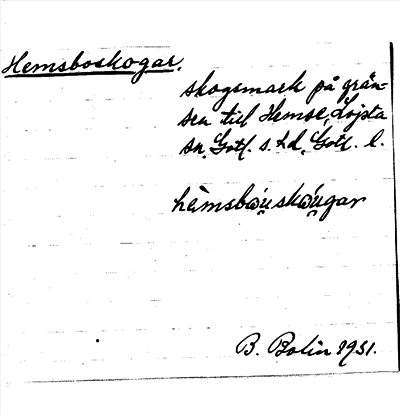 Hemsboskogar.
skogsmark på grän-
sen till Hemse, Lojsta
sn, Gotl. s. hd, Gotl. l.
hèmsbώu̯skώu̯gar
B. Bolin 1931.